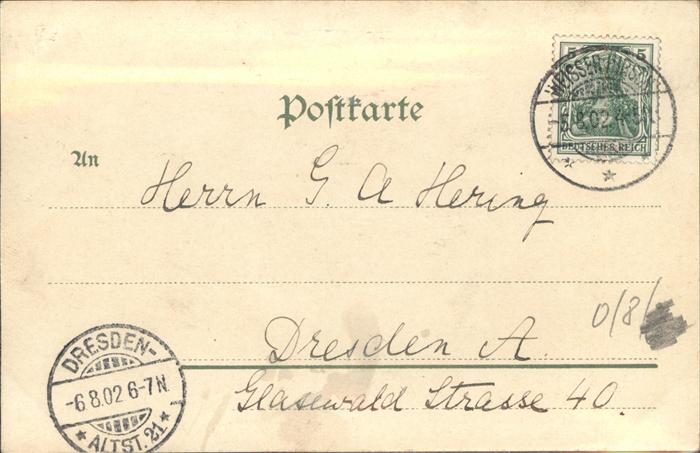 5 5
DEUTSCHES REICH
-6.8.02
Postkarte
An
Herrn G. A Hering
Dresden A.
Glasewald Strasse 40.
0/8/
DRESDEN-
-6.8.02 6-7N.
* ALTST. 21 *